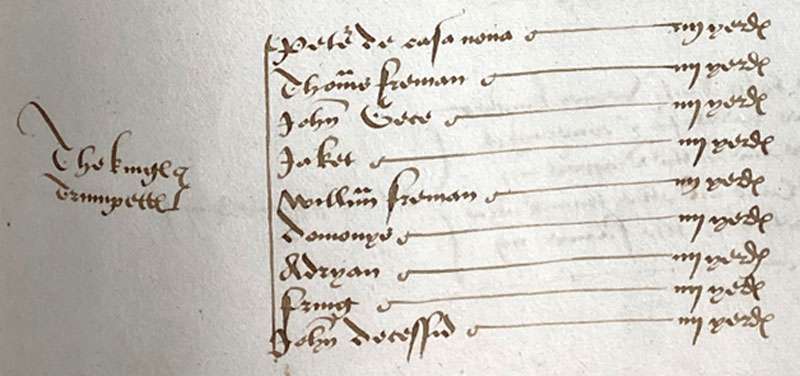 The kinges
Trumpettes
Pete de casa nova iiij yerdes
Thomas freman iiij yerdes
John Cece iiij yerdes
Jaket iiij yerdes
Willm freman iiij yerdes
Domonyc iiij yerdes
Adryan iiij yerdes
Fring iiij yerdes
John decessid iiij yerdes